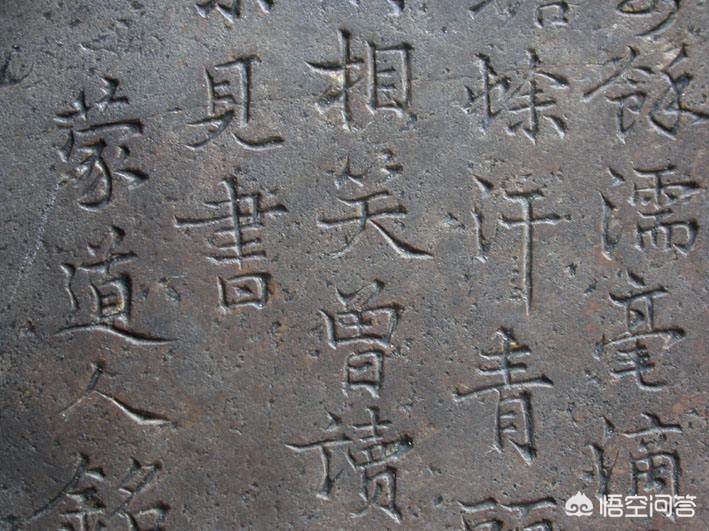 餘濡毫摘
蜍汗青
相笑曾讀
見書
蒙道人銘
悟空问答